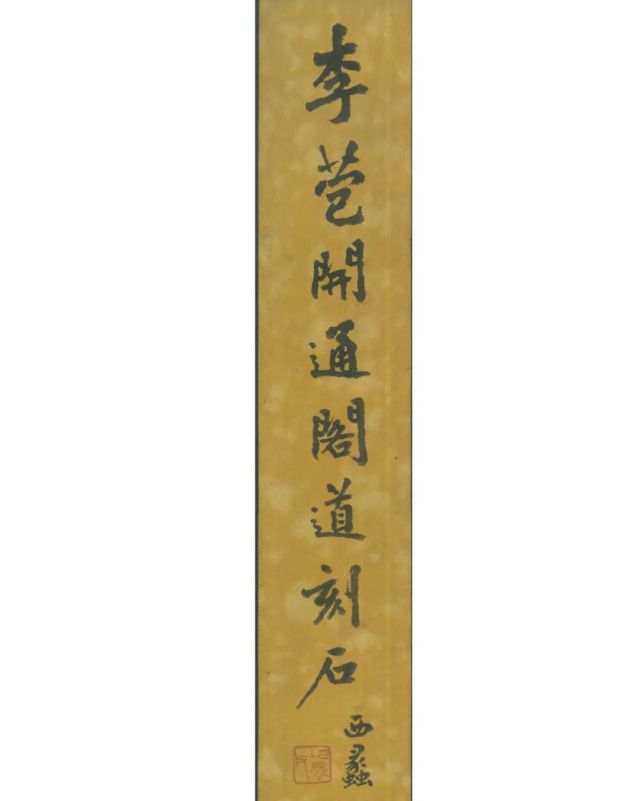 李苞開通閣道刻石
西蠡